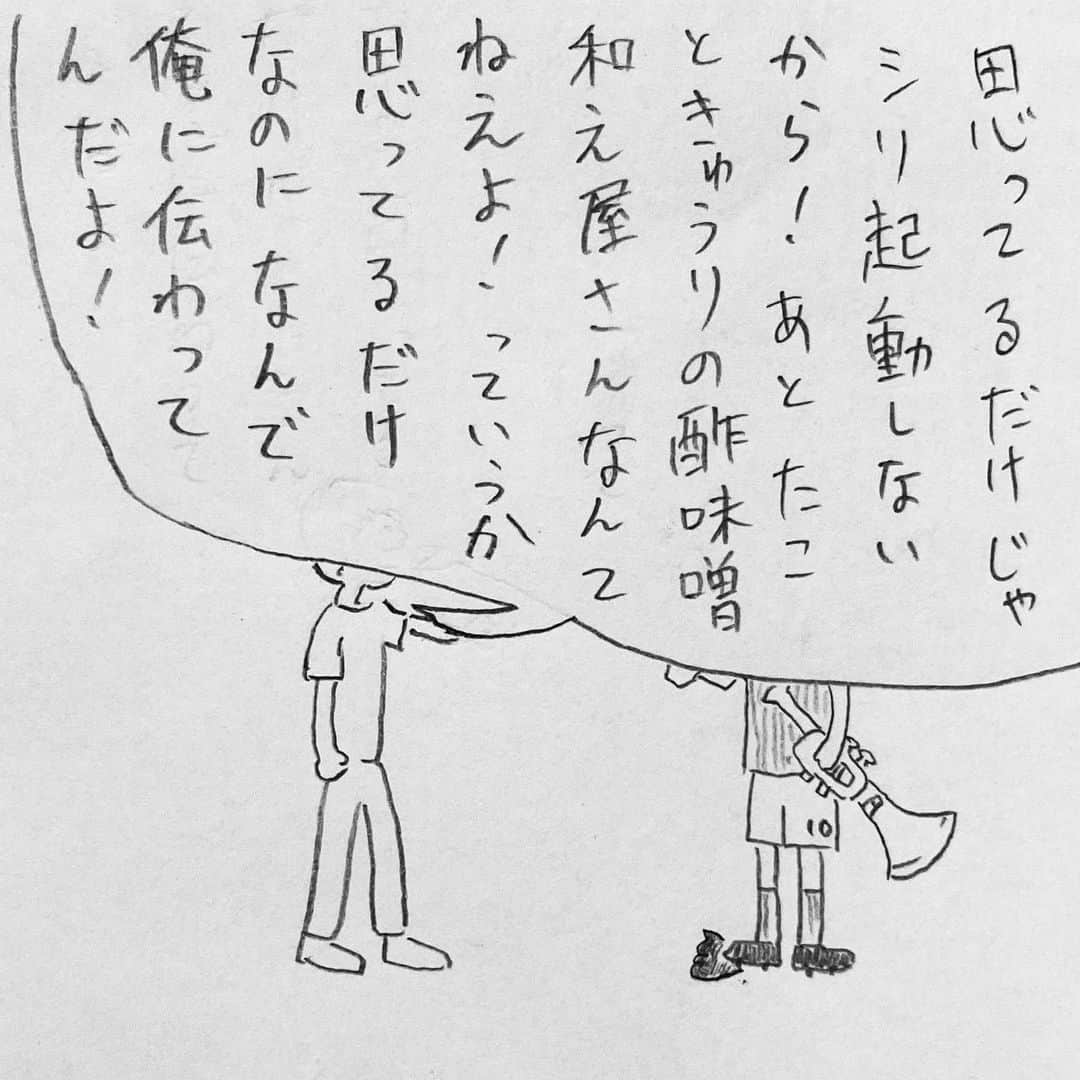 思ってるだけじゃ
シリ起動しない
から！あとたこ
ときゅうりの酢味噌
和え屋さんなんて
ねえよ！っていうか
思ってるだけ
なのになんで
俺に伝わって
んだよ！
10